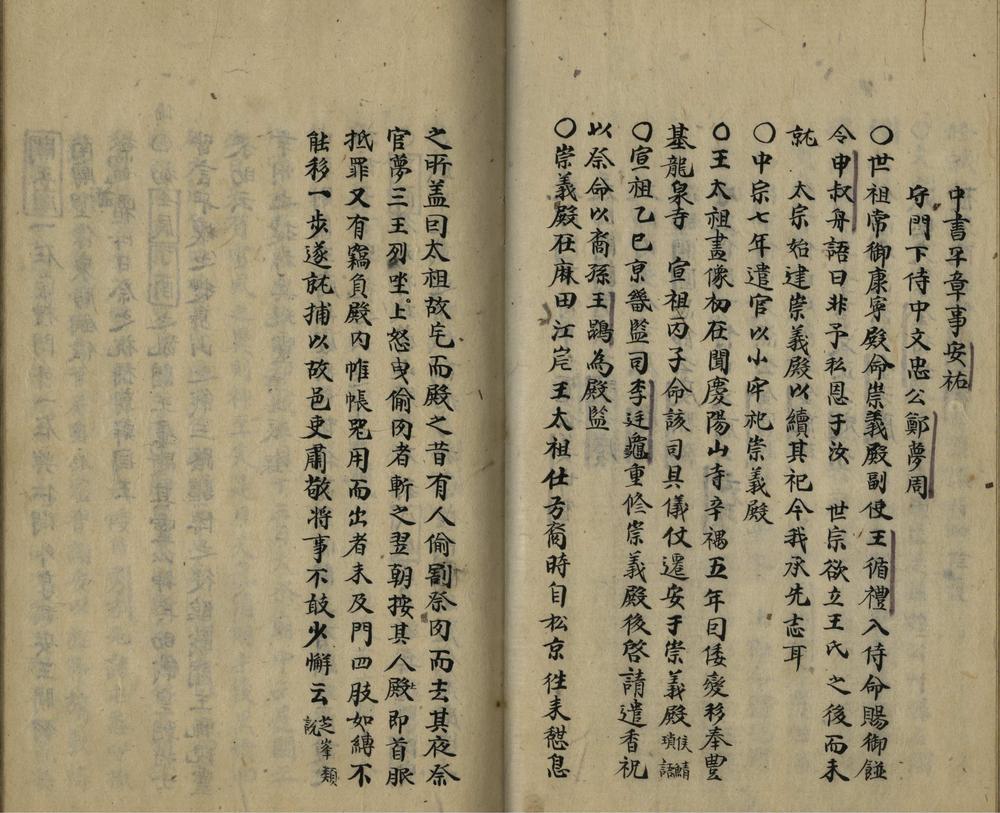 中書平章事安祐
守門下侍中文忠公鄭夢周
〇世祖常御康寧殿命崇義殿副使王循禮入侍命賜御饍
令申叔舟語曰非予私恩于汝 世宗欲立王氏之後而未
就 太宗始建崇義殿以續其祀今我承先志耳
〇中宗七年遣官以小牢祀崇義殿
〇王太祖畫像初在聞慶陽山寺辛禑五年因倭變移奉豊
基龍泉寺 宣祖丙子命該司具儀仗遷安于崇義殿侯鯖瑣語
〇宣祖乙巳京畿監司李廷龜重修崇義殿後啓請遣香祝
以祭命以裔孫王鵾為殿監
〇崇義殿在麻田江岸王太祖仕弓裔時自松京徃来憇息
之所盖因太祖故宅而殿之昔有人偷割祭肉而去其夜祭
官夢三王列坐上怒曳偷肉者斬之翌朝按其人殿卽首服
抵罪又有竊負殿內帷帳器用而出者未及門四肢如縛不
能移一步遂就捕以故邑吏肅敬将事不敢少懈云芝峯類說